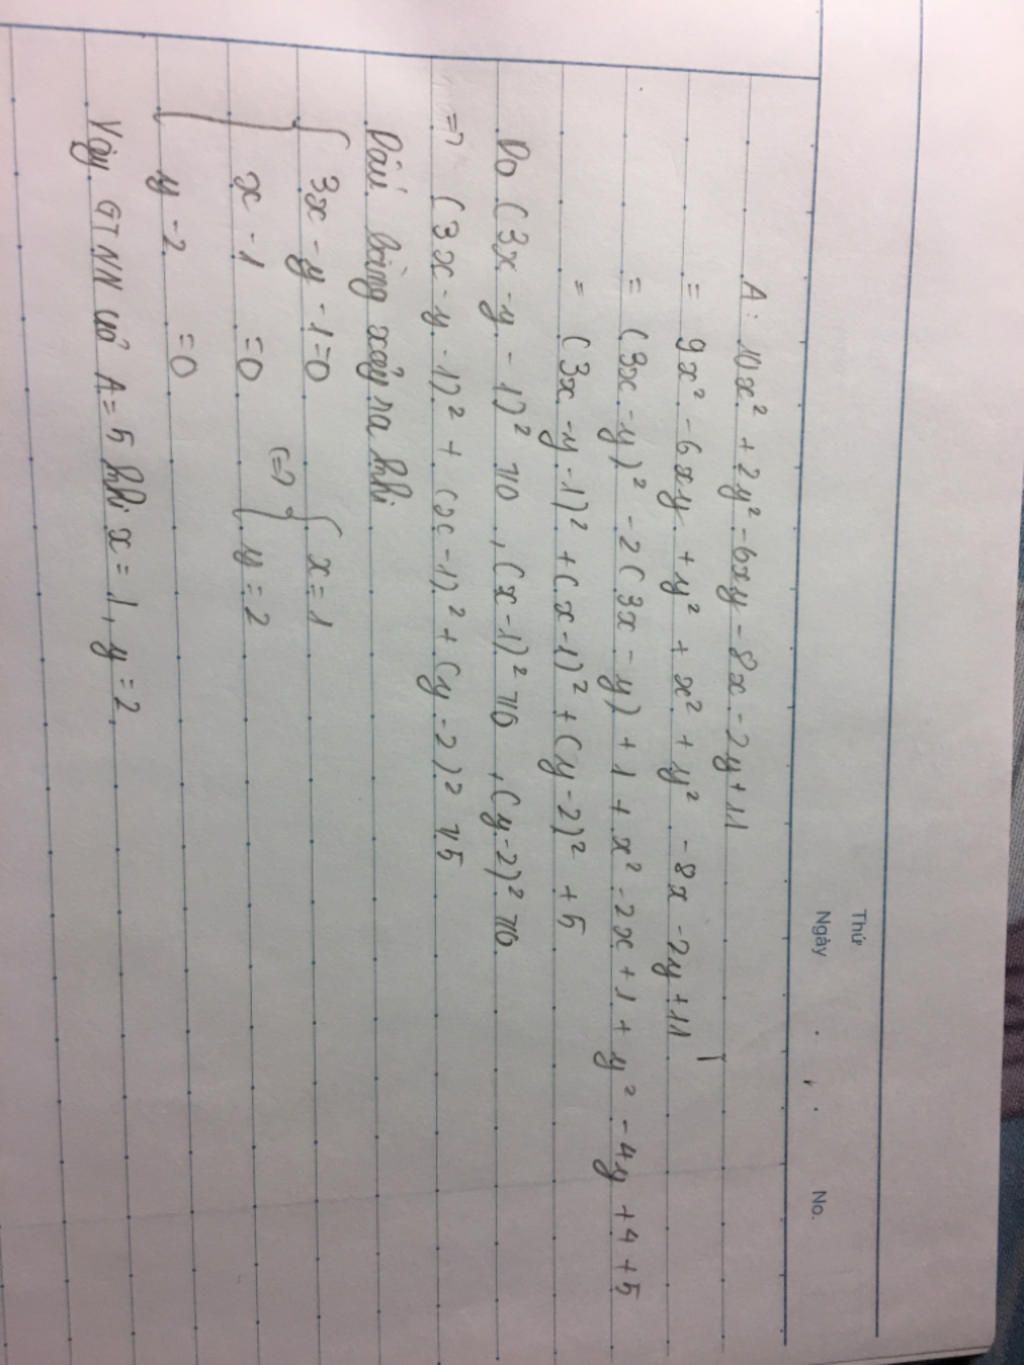 Thứ
Ngày No.
A: 10x² + 2y² - 6xy - 8x - 2y + 11
= 9x² - 6xy + y² + x² + y² - 8x - 2y + 11
= (3x - y)² - 2(3x - y) + 1 + x² - 2x + 1 + y² - 4y + 4 + 5
= (3x - y - 1)² + (x - 1)² + (y - 2)² + 5
Do (3x - y - 1)² ≥ 0, (x - 1)² ≥ 0, (y - 2)² ≥ 0
=> (3x - y - 1)² + (x - 1)² + (y - 2)² ≥ 5
Dấu bằng xảy ra khi
{ 3x - y - 1 = 0
x - 1 = 0 <=> { x = 1
y - 2 = 0 y = 2
Vậy GTNN của A = 5 khi x = 1, y = 2